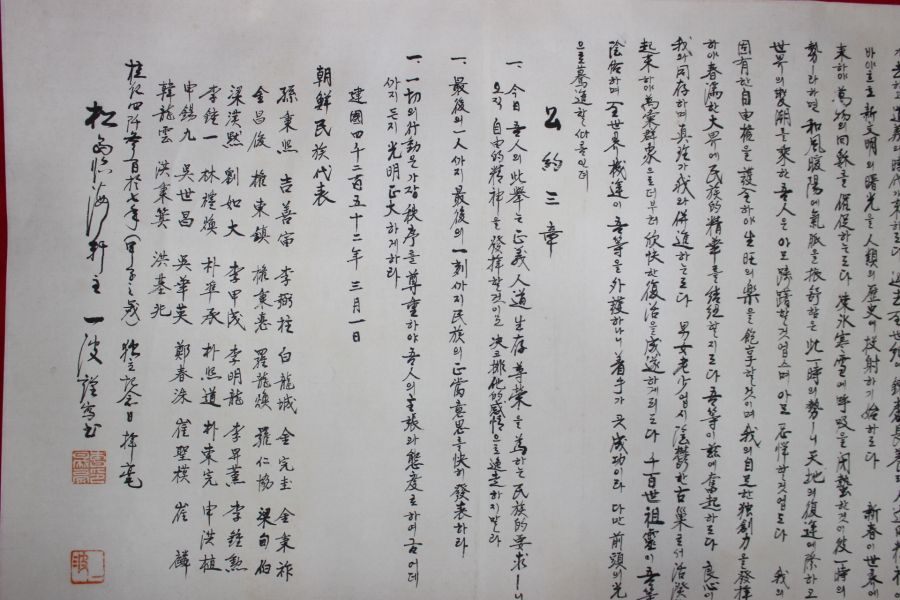 去하고 道義의 時代가 來하도다 過去全世紀에 鍊磨長養된 人道的精神이
바야흐로 新文明의 曙光을 人類의 歷史에 投射하기 始하도다 新春이 世界에
來하야 萬物의 回穌를 催促하는도다 凍氷寒雪에 呼吸을 閉蟄한것이 彼一時의
勢ㅣ라하면 和風暖陽에 氣脈을 振舒함은 此一時의 勢ㅣ니 天地의 復運에 際하고
世界의 變潮를 乘한 吾人은 아모 躊躇할것업스며 아모 忌憚할것업도다 我의
固有한 自由權을 護全하야 生旺의 樂을 飽享할것이며 我의 自足한 獨創力을 發揮
하야 春滿한 大界에 民族的精華를 結紐할지로다 吾等이 玆에 奮起하도다 良心이
我와 同存하며 眞理가 我와 併進하는도다 男女老少업시 陰鬱한 古巢로서 活潑
起來하야 萬彙群象으로더부러 欣快한 復活을 成遂하게되도다 千百世祖靈이 吾等
陰佑하며 全世界氣運이 吾等을 外護하나니 着手가 곳 成功이라 다만 前頭의 光
으로 驀進할 따름인뎌
公約三章
一. 今日 吾人의 此擧는 正義 人道 生存 尊榮을 爲하는 民族的要求ㅣ니
오직 自由的精神을 發揮할것이오 決코 排他的感情으로 逸走하지말라
一. 最後의 一人까지 最後의 一刻까지 民族의 正當意思를 快히 發表하라
一. 一切의 行動은 가장 秩序를 尊重하야 吾人의 主張과 態度로하여금 어데
까지든지 光明正大하게하라
建國四千二百五十二年 三月一日
朝鮮民族代表
孫秉熙 吉善宙 李弼柱 白龍城 金完圭 金秉祚
金昌俊 權東鎭 權秉悳 羅龍煥 羅仁協 梁甸伯
梁漢默 劉如大 李甲成 李明龍 李昇薰 李鍾勳
李鍾一 林禮煥 朴準承 朴熙道 朴東完 申洪植
申錫九 吳世昌 吳華英 鄭春洙 崔聖模 崔麟
韓龍雲 洪秉箕 洪基兆
檀紀四阡參百拾七年(甲子之歲) 獨立記念日揮毫
松 臨海軒主 一波謹寫
一波